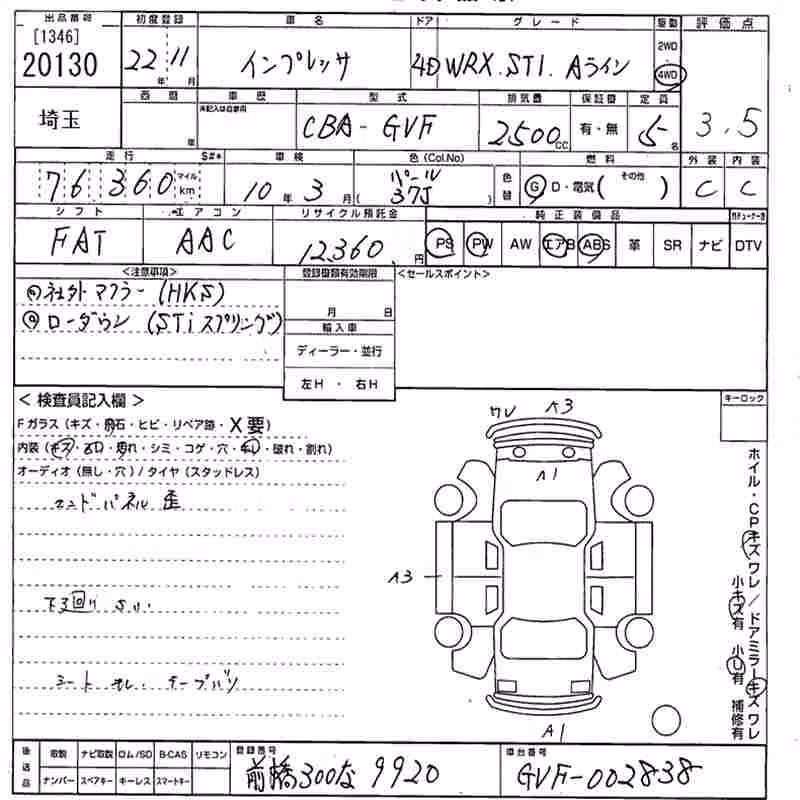 出品番号 初度登録 車名 ドア グレード 駆動 評価点
[1346]
20130 22年 11月 インプレッサ 4D WRX.STI. Aライン 2WD 4WD 3.5
埼玉 西暦 年 車歴 未記入は自家用 型式 CBA-GVF 排気量 2500cc 保証書 有・無 定員 5名
走行 S#* 車検 色(Col.No) 燃料 外装 内装
76360 マイル km 10年 3月 パール (37J) 色替 G D・電気 (その他) C C
シフト エアコン リサイクル預託金 純正装備品
FAT AAC 12,360円 PS PW AW エアB ABS 革 SR ナビ DTV
<注意事項> 登録書類有効期限 <セールスポイント>
社外マフラー(HKS) 月 日
ローダウン (STiスプリング) 輸入車
ディーラー・並行
左H・右H
<検査員記入欄> キーロック
Fガラス (キズ・飛石・ヒビ・リペア跡・X要)
内装 (キズ・汚れ・シミ・コゲ・穴・破れ・割れ)
オーディオ (無し・穴) / タイヤ (スタッドレス)
エンドパネル 歪
下回り
シート テープバリ
ワレ A3
A1
A3
A1
ホイル・CPキズワレ/ドアミラーキズワレ
小キズ有 小U有 補修有
後送品 取説 ナビ取説 ロム/SD B-CAS リモコン 登録番号 車台番号
ナンバー スペアキー キーレス スマートキー 前橋300な 9920 GVF-002838